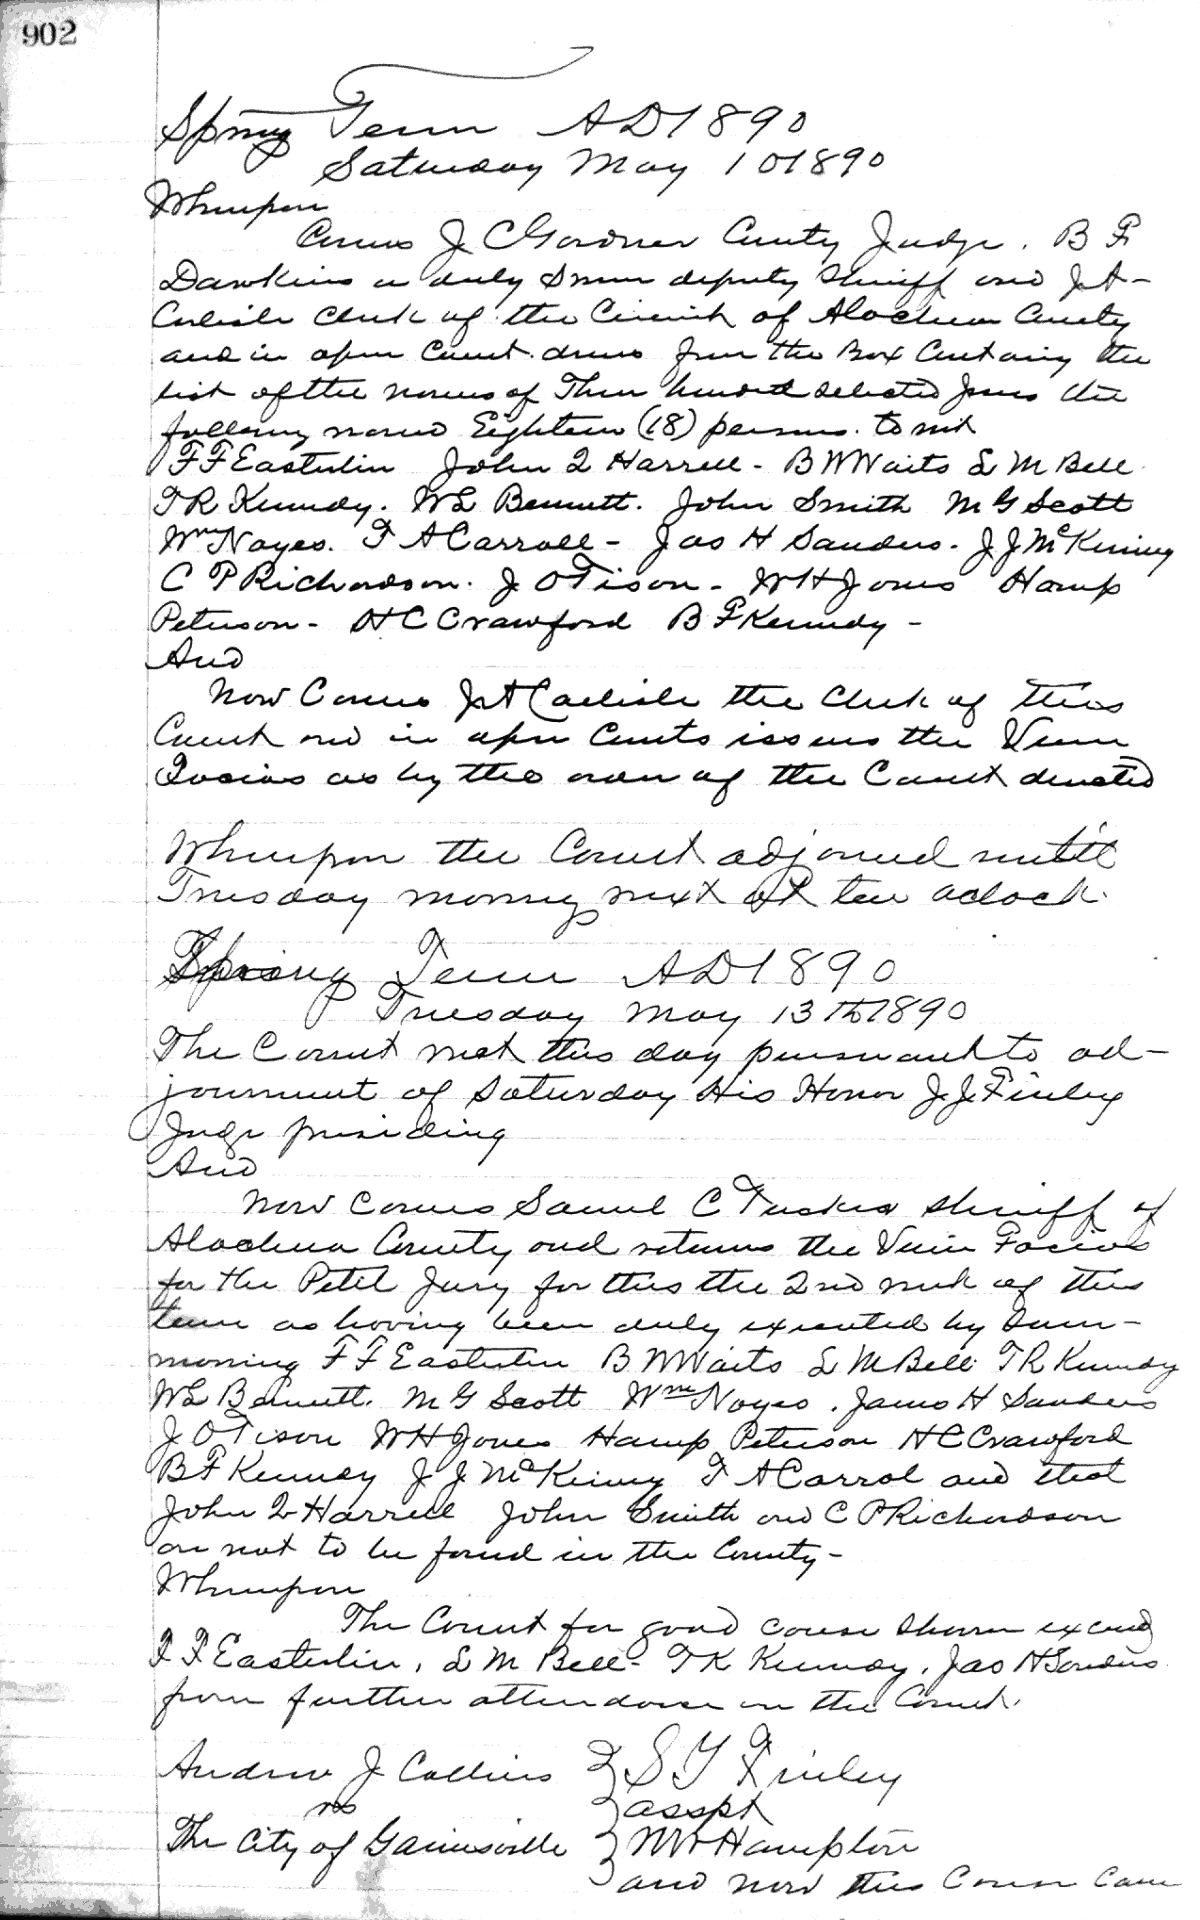 902
Spring Term AD 1890
Saturday May 10 1890
Whereupon
Comes J C Gardner County Judge. B F
Dawkins a duly sworn deputy Sheriff and J A
Carlisle Clerk of the Circuit of Alachua County
and in open Court draws from the Box Containing the
list of the names of Three hundred selected Jurors the
following named Eighteen (18) persons. to wit
F F Easterlin John Q Harrell - B W Waits L M Bell
T R Kennedy. W L Bennett. John Smith M G Scott
Wm Noyes. T A Carroll - Jas H Sanders - J J McKinney
C P Richardson. J O Tison - W H Jones Hamp
Peterson - H C Crawford B F Kennedy -
And
Now Comes J A Carlisle the Clerk of this
Court and in open Court issues the Veni
Facias as by the order of the Court directed
Whereupon the Court adjourned until
Tuesday morning next at ten oclock.
Spring Term AD 1890
Tuesday May 13th 1890
The Court met this day pursuant to ad-
journment of Saturday His Honor J J Finley
Juge presiding
And
Now Comes Samuel C Tucker Sheriff of
Alachua County and returns the Veni Facias
for the Petit Jury for this the 2nd week of this
term as having been duly executed by Sum-
moning F F Easterlin B W Waits L M Bell T R Kennedy
W L Bennett. M G Scott Wm Noyes. James H Sanders
J O Tison W H Jones Hamp Peterson H C Crawford
B F Kennedy J J McKinney T A Carrol and that
John Q Harrell John Smith and C P Richardson
are not to be found in the County -
Whereupon
The Court for good cause shown excused
F F Easterlin, L M Bell - T R Kennedy, Jas H Sanders
from further attendance on the Court.
Andrew J Collins S Y Finley
vs asspt
The City of Gainesville W W Hampton
and now this Cause Came